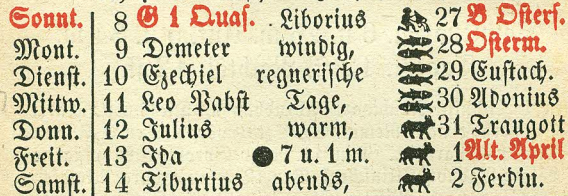 Sonnt. 8 G 1 Quas. Liborius 27 B Osters.
Mont. 9 Demeter windig, 28 Osterm.
Dienst. 10 Ezechiel regnerische 29 Eustach.
Mittw. 11 Leo Pabst Tage, 30 Adonius
Donn. 12 Julius warm, 31 Traugott
Freit. 13 Ida ● 7 u. 1 m. 1 Alt. April
Samst. 14 Tiburtius abends, 2 Ferdin.